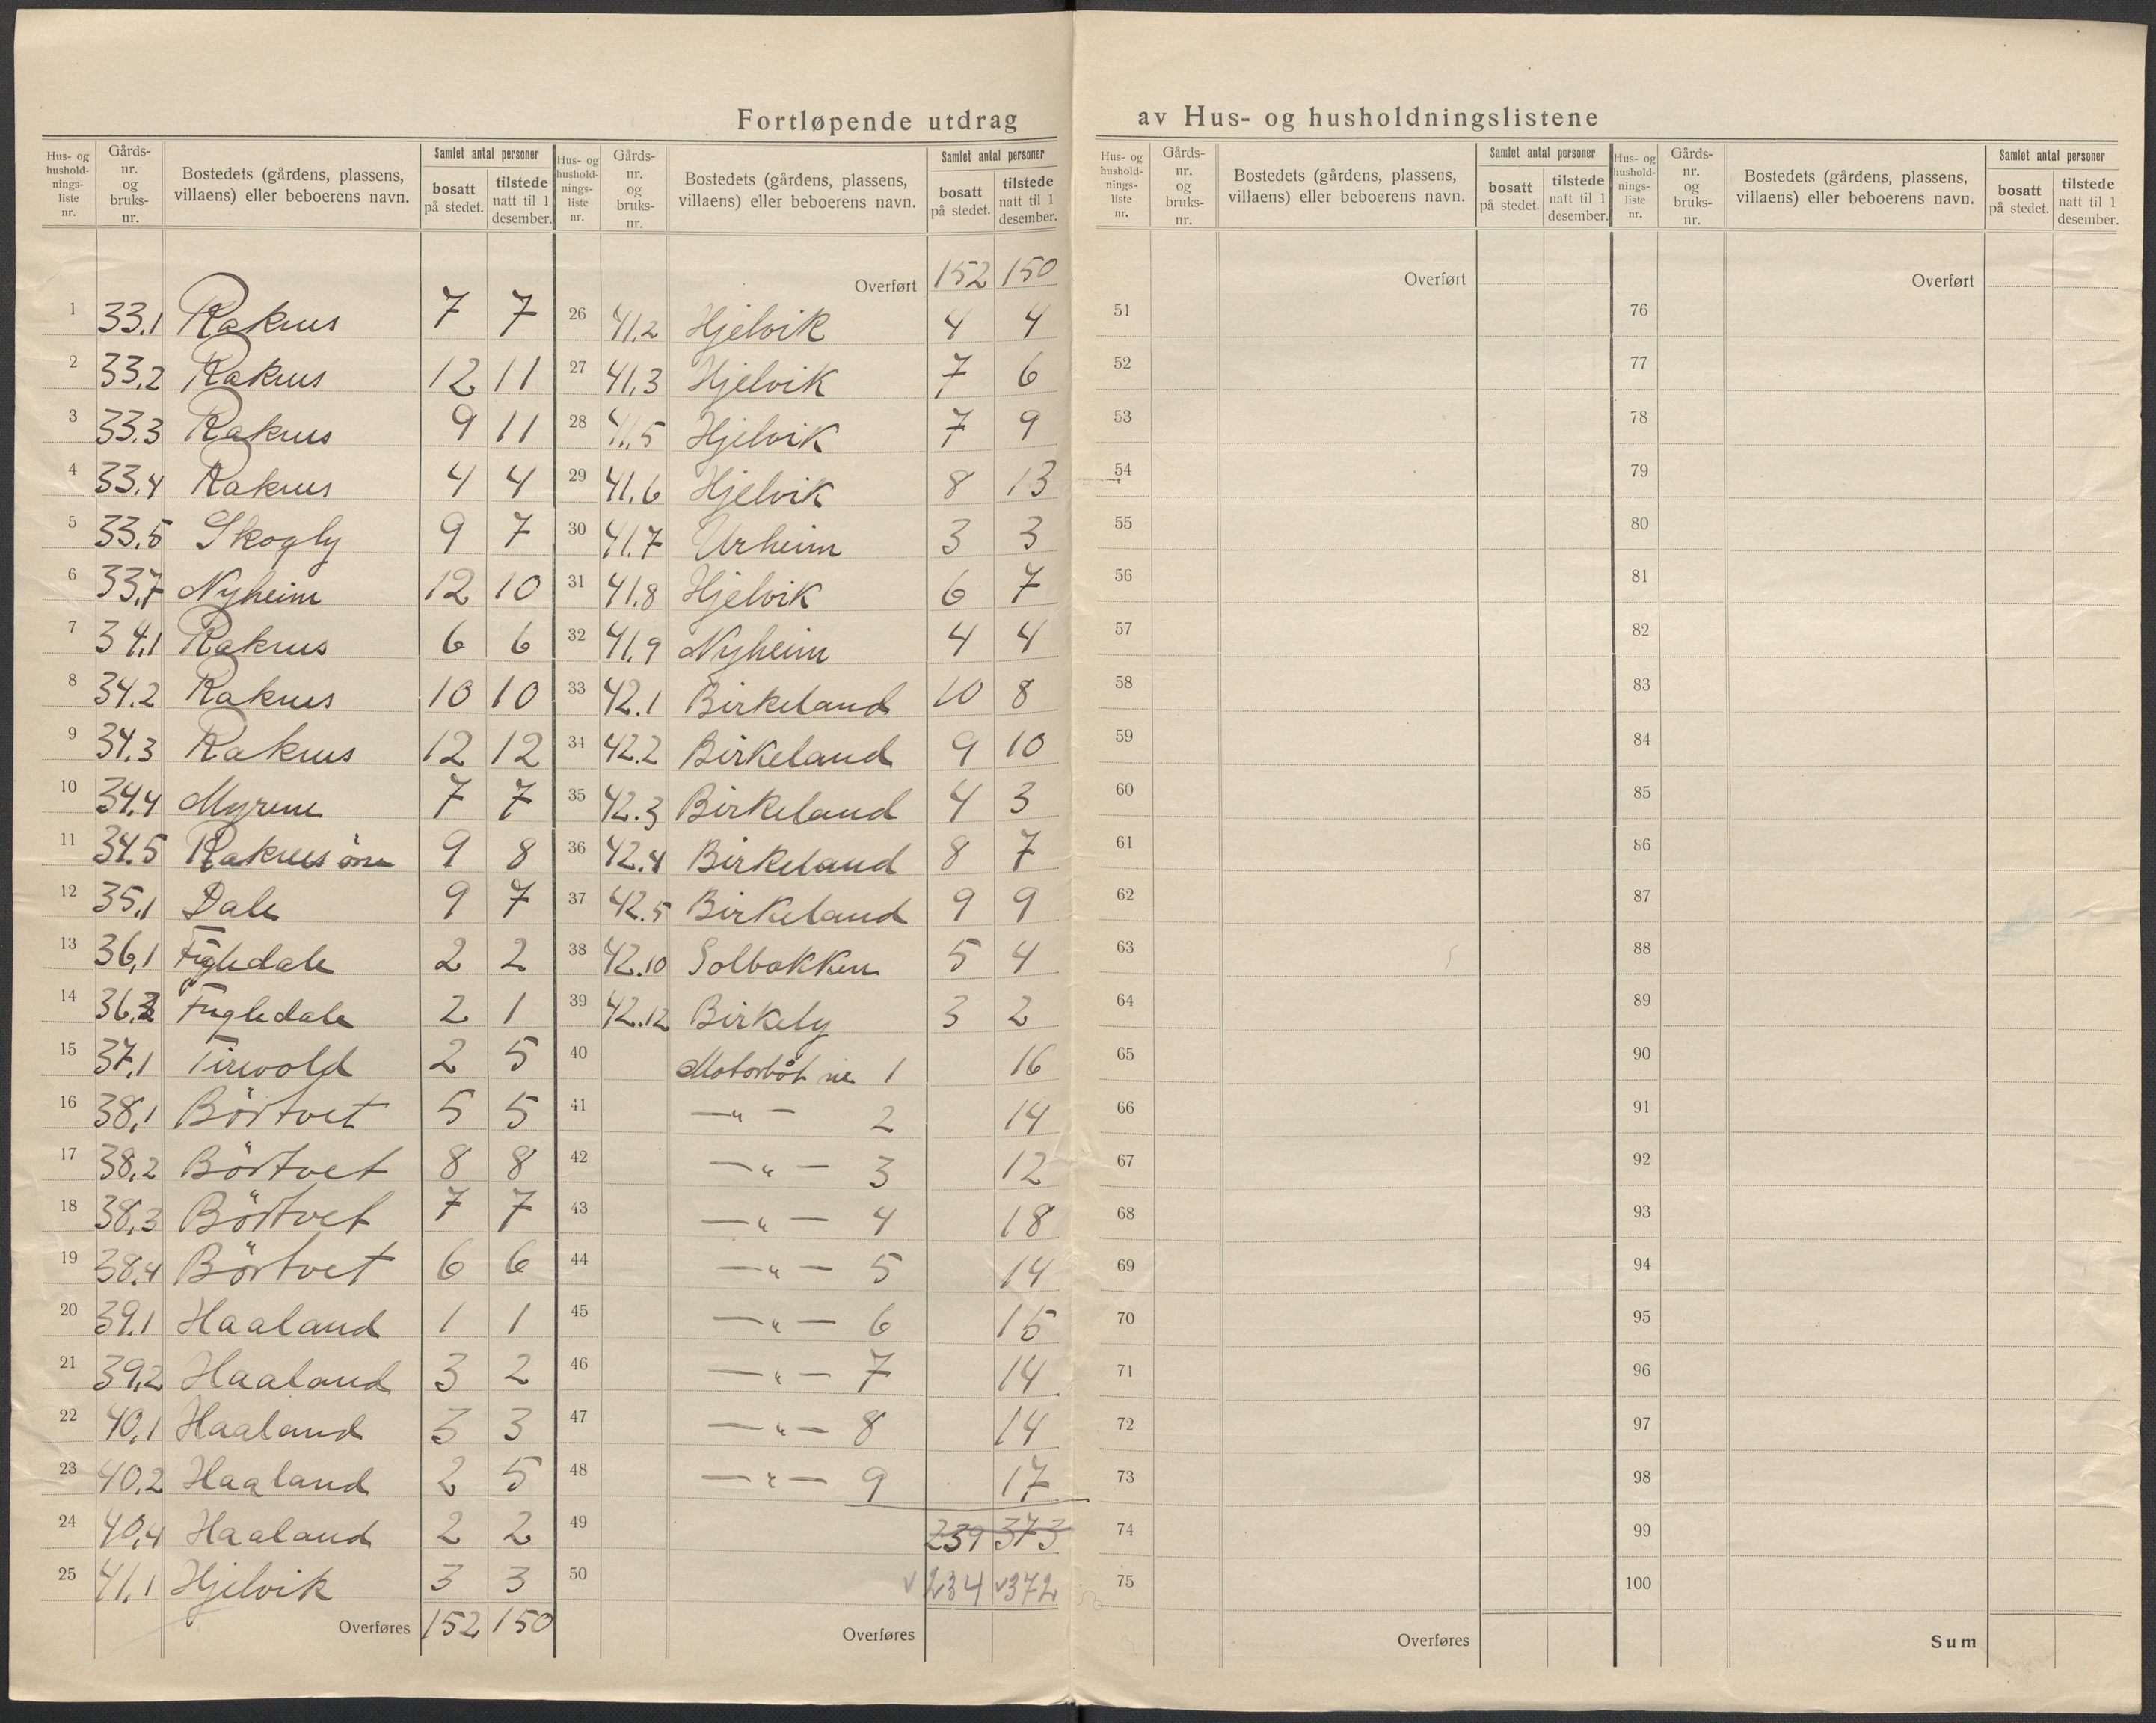 Fortløpende utdrag av Hus- og husholdningslistene
Hus- og hushold-nings-liste nr. Gårds-nr. og bruks-nr. Bostedets (gårdens, plassens, villaens) eller beboerens navn. Samlet antal personer bosatt på stedet. tilstede natt til 1 desember.
1 33.1 Raknes 7 7
2 33.2 Raknes 12 11
3 33.3 Raknes 9 11
4 33.4 Raknes 4 4
5 33.5 Skogly 9 7
6 33.7 Nyheim 12 10
7 34.1 Raknes 6 6
8 34.2 Raknes 10 10
9 34.3 Raknes 12 12
10 34.4 Myrene 7 7
11 34.5 Raknes 9 8
12 35.1 Dale 9 7
13 36.1 Fugledale 2 2
14 36.2 Fugledale 2 1
15 37.1 Tirevold 2 5
16 38.1 Börtvet 5 5
17 38.2 Börtvet 8 8
18 38.3 Börtvet 7 7
19 38.4 Börtvet 6 6
20 39.1 Haaland 1 1
21 39.2 Haaland 3 2
22 40.1 Haaland 3 3
23 40.2 Haaland 2 5
24 40.4 Haaland 2 2
25 41.1 Hjelvik 3 3
Overføres 152 150
Hus- og hushold-nings-liste nr. Gårds-nr. og bruks-nr. Bostedets (gårdens, plassens, villaens) eller beboerens navn. Samlet antal personer bosatt på stedet. tilstede natt til 1 desember.
Overført 152 150
26 41.2 Hjelvik 4 4
27 41.3 Hjelvik 7 6
28 41.5 Hjelvik 7 9
29 41.6 Hjelvik 8 13
30 41.7 Urheim 3 3
31 41.8 Hjelvik 6 7
32 41.9 Nyheim 4 4
33 42.1 Birkeland 10 8
34 42.2 Birkeland 9 10
35 42.3 Birkeland 4 3
36 42.4 Birkeland 8 7
37 42.5 Birkeland 9 9
38 42.10 Solbakken 5 4
39 42.12 Birkely 3 2
40 Motorbåt nr. 1 16
41 —"— 2 14
42 —"— 3 12
43 —"— 4 18
44 —"— 5 14
45 —"— 6 15
46 —"— 7 14
47 —"— 8 14
48 —"— 9 17
49 239 373
50 √234 √372
Overføres
Hus- og hushold-nings-liste nr. Gårds-nr. og bruks-nr. Bostedets (gårdens, plassens, villaens) eller beboerens navn. Samlet antal personer bosatt på stedet. tilstede natt til 1 desember.
Overført
51
52
53
54
55
56
57
58
59
60
61
62
63
64
65
66
67
68
69
70
71
72
73
74
75
Overføres
Hus- og hushold-nings-liste nr. Gårds-nr. og bruks-nr. Bostedets (gårdens, plassens, villaens) eller beboerens navn. Samlet antal personer bosatt på stedet. tilstede natt til 1 desember.
Overført
76
77
78
79
80
81
82
83
84
85
86
87
88
89
90
91
92
93
94
95
96
97
98
99
100
Sum